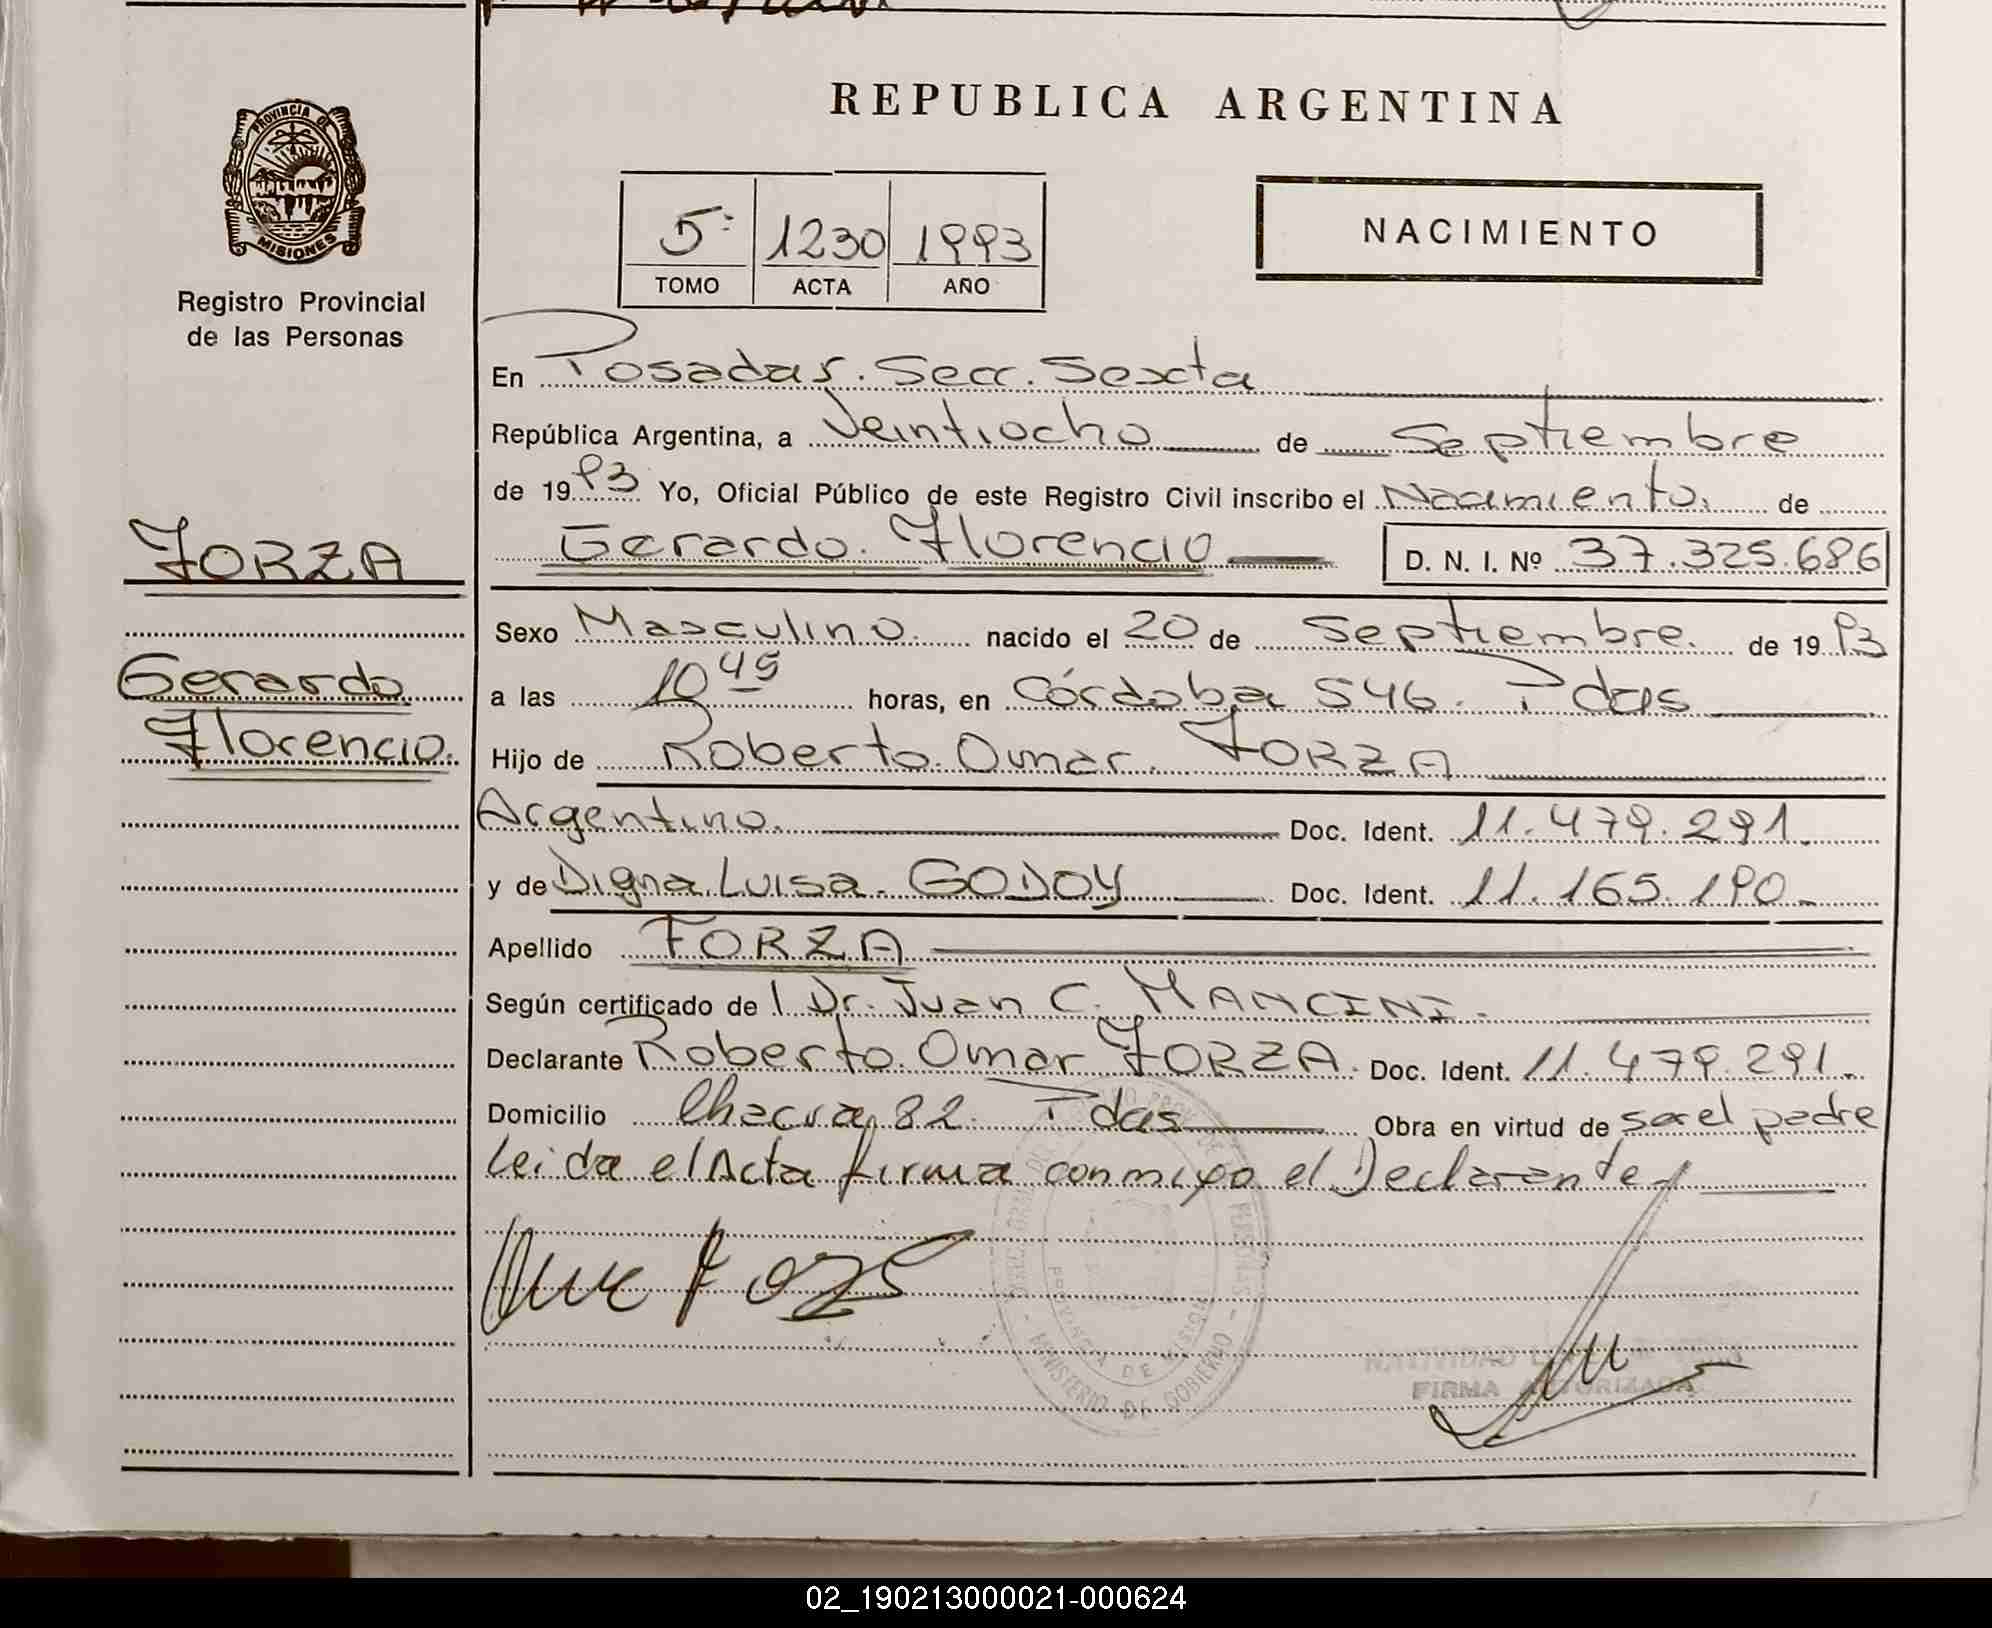 REPUBLICA ARGENTINA
PROVINCIA DE
MISIONES
Registro Provincial
de las Personas
5º 1230 1993
TOMO ACTA AÑO
NACIMIENTO
En Posadas. Secc. Sexta
República Argentina, a Veintiocho de Septiembre
de 1993 Yo, Oficial Público de este Registro Civil inscribo el Nacimiento. de
FORZA
Gerardo. Florencio D. N. I. Nº 37.325.686
Sexo Masculino. nacido el 20 de Septiembre. de 1993
Gerardo
Florencio.
a las 10 45 horas, en Córdoba 546. Pdas
Hijo de Roberto. Omar. FORZA
Argentino. Doc. Ident. 11.479.291.
y de Digna Luisa. GODOY Doc. Ident. 11.165.190.
Apellido FORZA
Según certificado de l Dr. Juan C. MANCINI.
Declarante Roberto. Omar FORZA. Doc. Ident. 11.479.291.
Domicilio Chacra 82. Pdas Obra en virtud de ser el padre
Leida el Acta firma conmigo el Declarante
PROVINCIA DE MISIONES
MINISTERIO DE GOBIERNO
NATIVIDAD
FIRMA AUTORIZADA
02_190213000021-000624